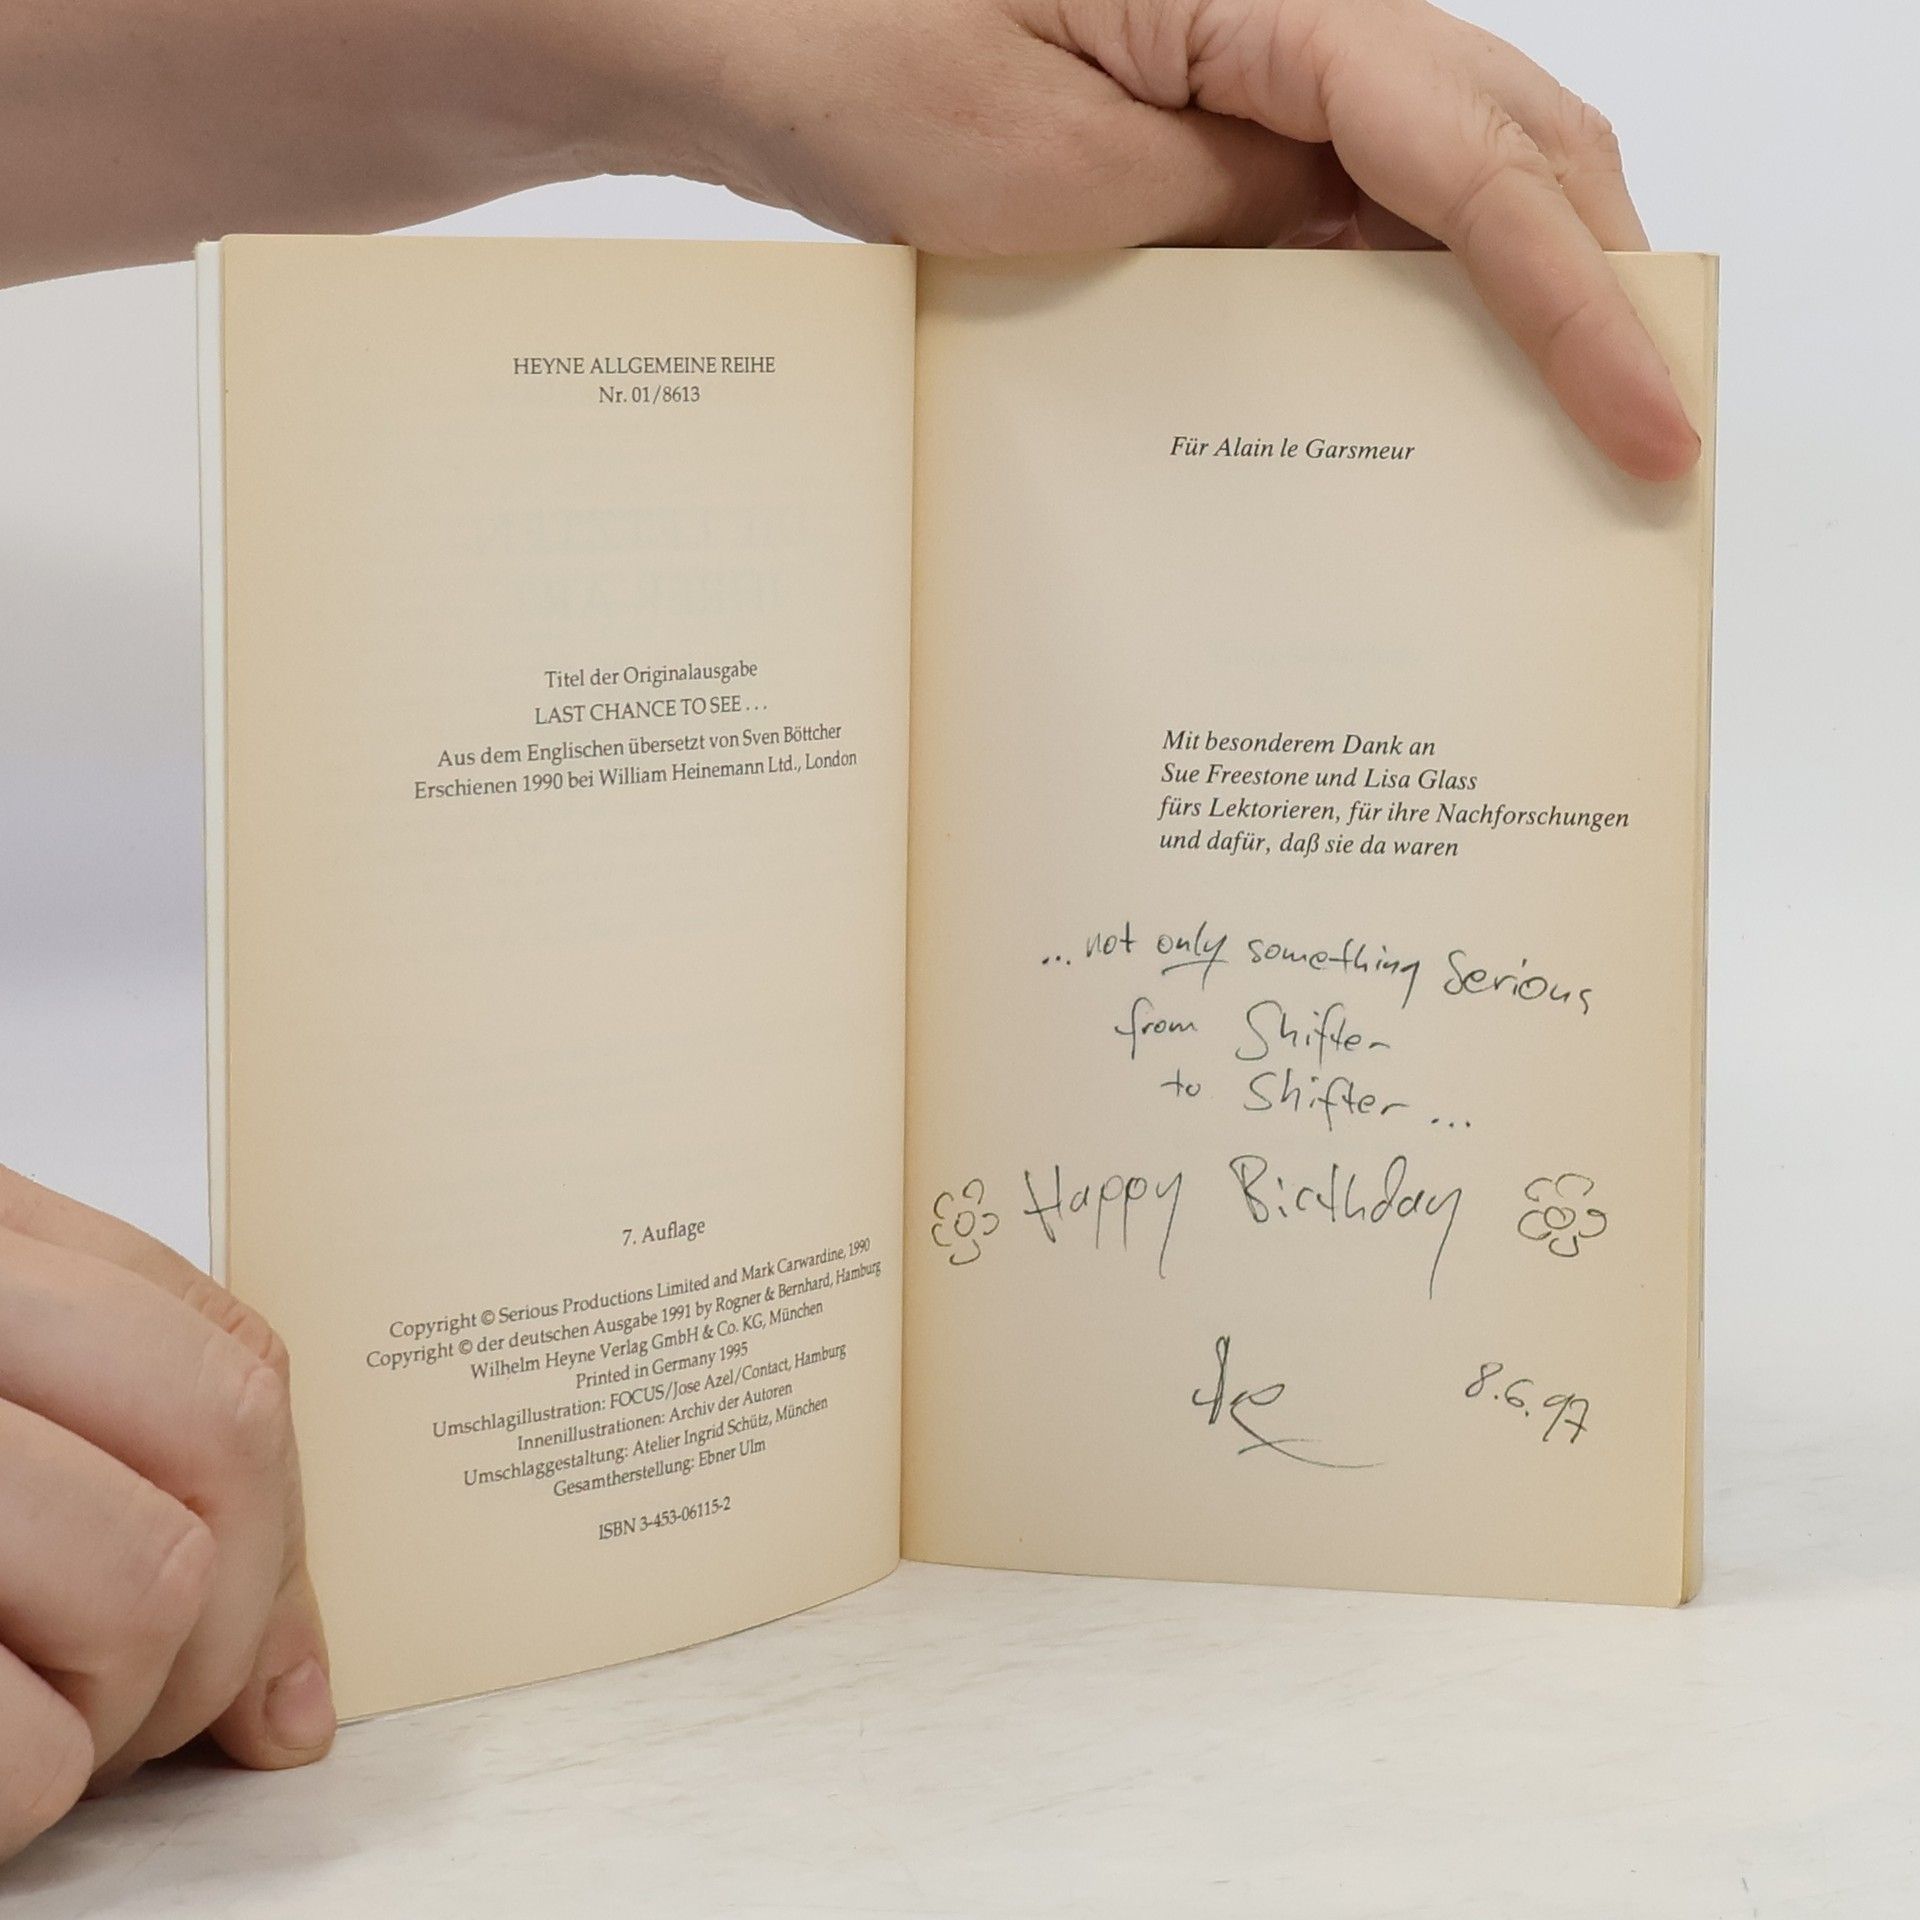 HEYNE ALLGEMEINE REIHE
Nr. 01/8613
Titel der Originalausgabe
LAST CHANCE TO SEE...
Aus dem Englischen übersetzt von Sven Böttcher
Erschienen 1990 bei William Heinemann Ltd., London
7. Auflage
Copyright © Serious Productions Limited and Mark Carwardine, 1990
Copyright © der deutschen Ausgabe 1991 by Rogner & Bernhard, Hamburg
Wilhelm Heyne Verlag GmbH & Co. KG, München
Printed in Germany 1995
Umschlagillustration: FOCUS/Jose Azel/Contact, Hamburg
Innenillustrationen: Archiv der Autoren
Umschlaggestaltung: Atelier Ingrid Schütz, München
Gesamtherstellung: Ebner Ulm
ISBN 3-453-06115-2
Für Alain le Garsmeur
Mit besonderem Dank an
Sue Freestone und Lisa Glass
fürs Lektorieren, für ihre Nachforschungen
und dafür, daß sie da waren
... not only something Serious
from Shifter
to Shifter ...
Happy Birthday
8.6.97